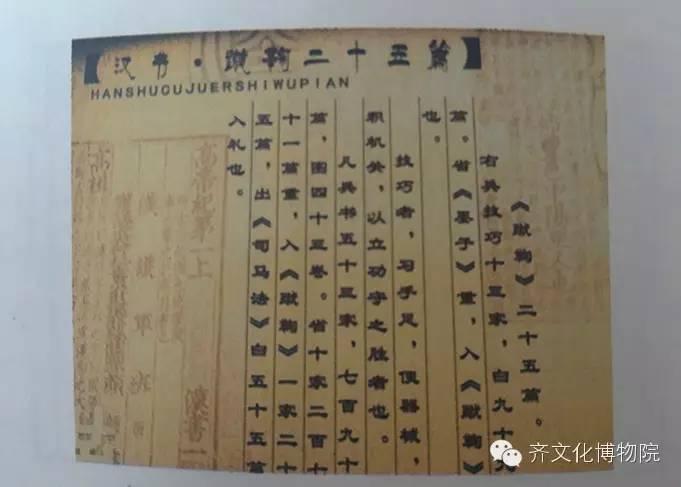 【汉书·蹴鞠二十五篇】
HANSHUCUJUERSHIWUPIAN
《蹴鞠》二十五篇。
右兵技巧十三家，百九十九
篇。省《墨子》重，入《蹴鞠》
也。
技巧者，习手足，便器械，
积机关，以立功守之胜者也。
凡兵书五十三家，七百九十
篇，图四十三卷。省十家二百十
十一篇重，入《蹴鞠》一家二十
五篇，出《司马法》百五十五篇
入礼也。
高帝紀第一上
漢書一
齐文化博物院